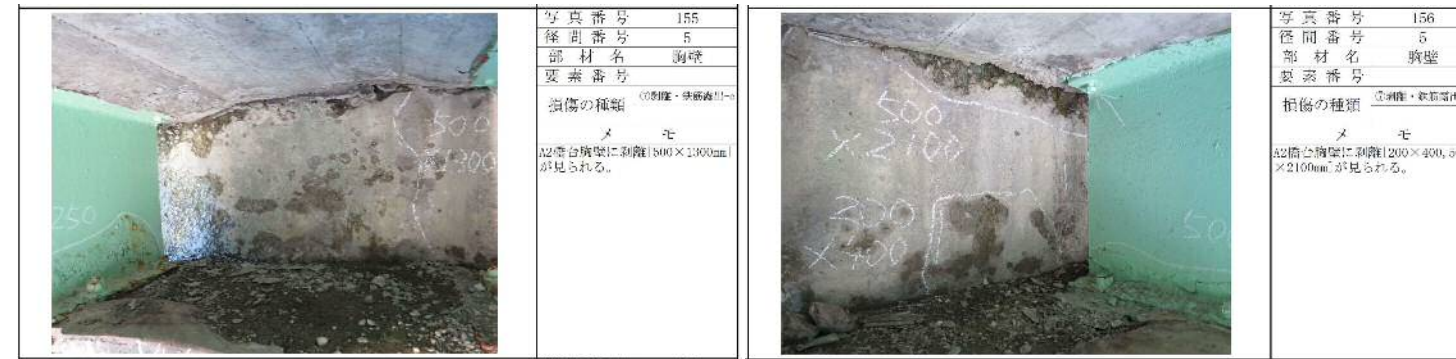 写真番号 155
径間番号 5
部材名 胸壁
要素番号
損傷の種類 ⑦剥離・鉄筋露出-c
メモ
A2橋台胸壁に剥離[500×1300mm]
が見られる。
500
×1300
250
写真番号 156
径間番号 5
部材名 胸壁
要素番号
損傷の種類 ⑦剥離・鉄筋露出
メモ
A2橋台胸壁に剥離[200×400,5
×2100mm]が見られる。
500
×2100
×400
50